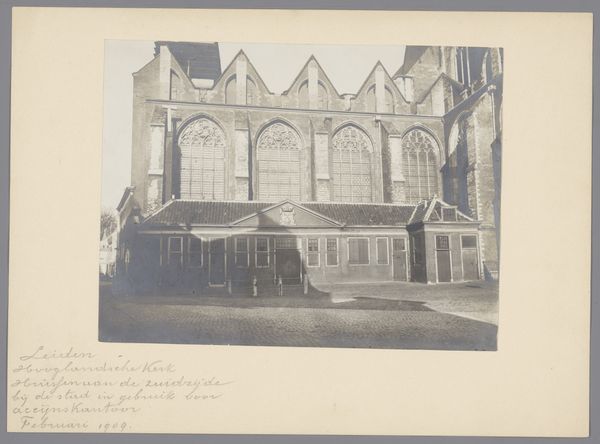 Leiden
Hooglandsche Kerk
Huisjen aan de zuidzijde
bij de stad in gebruik voor
accijnskantoor
Februari 1909.